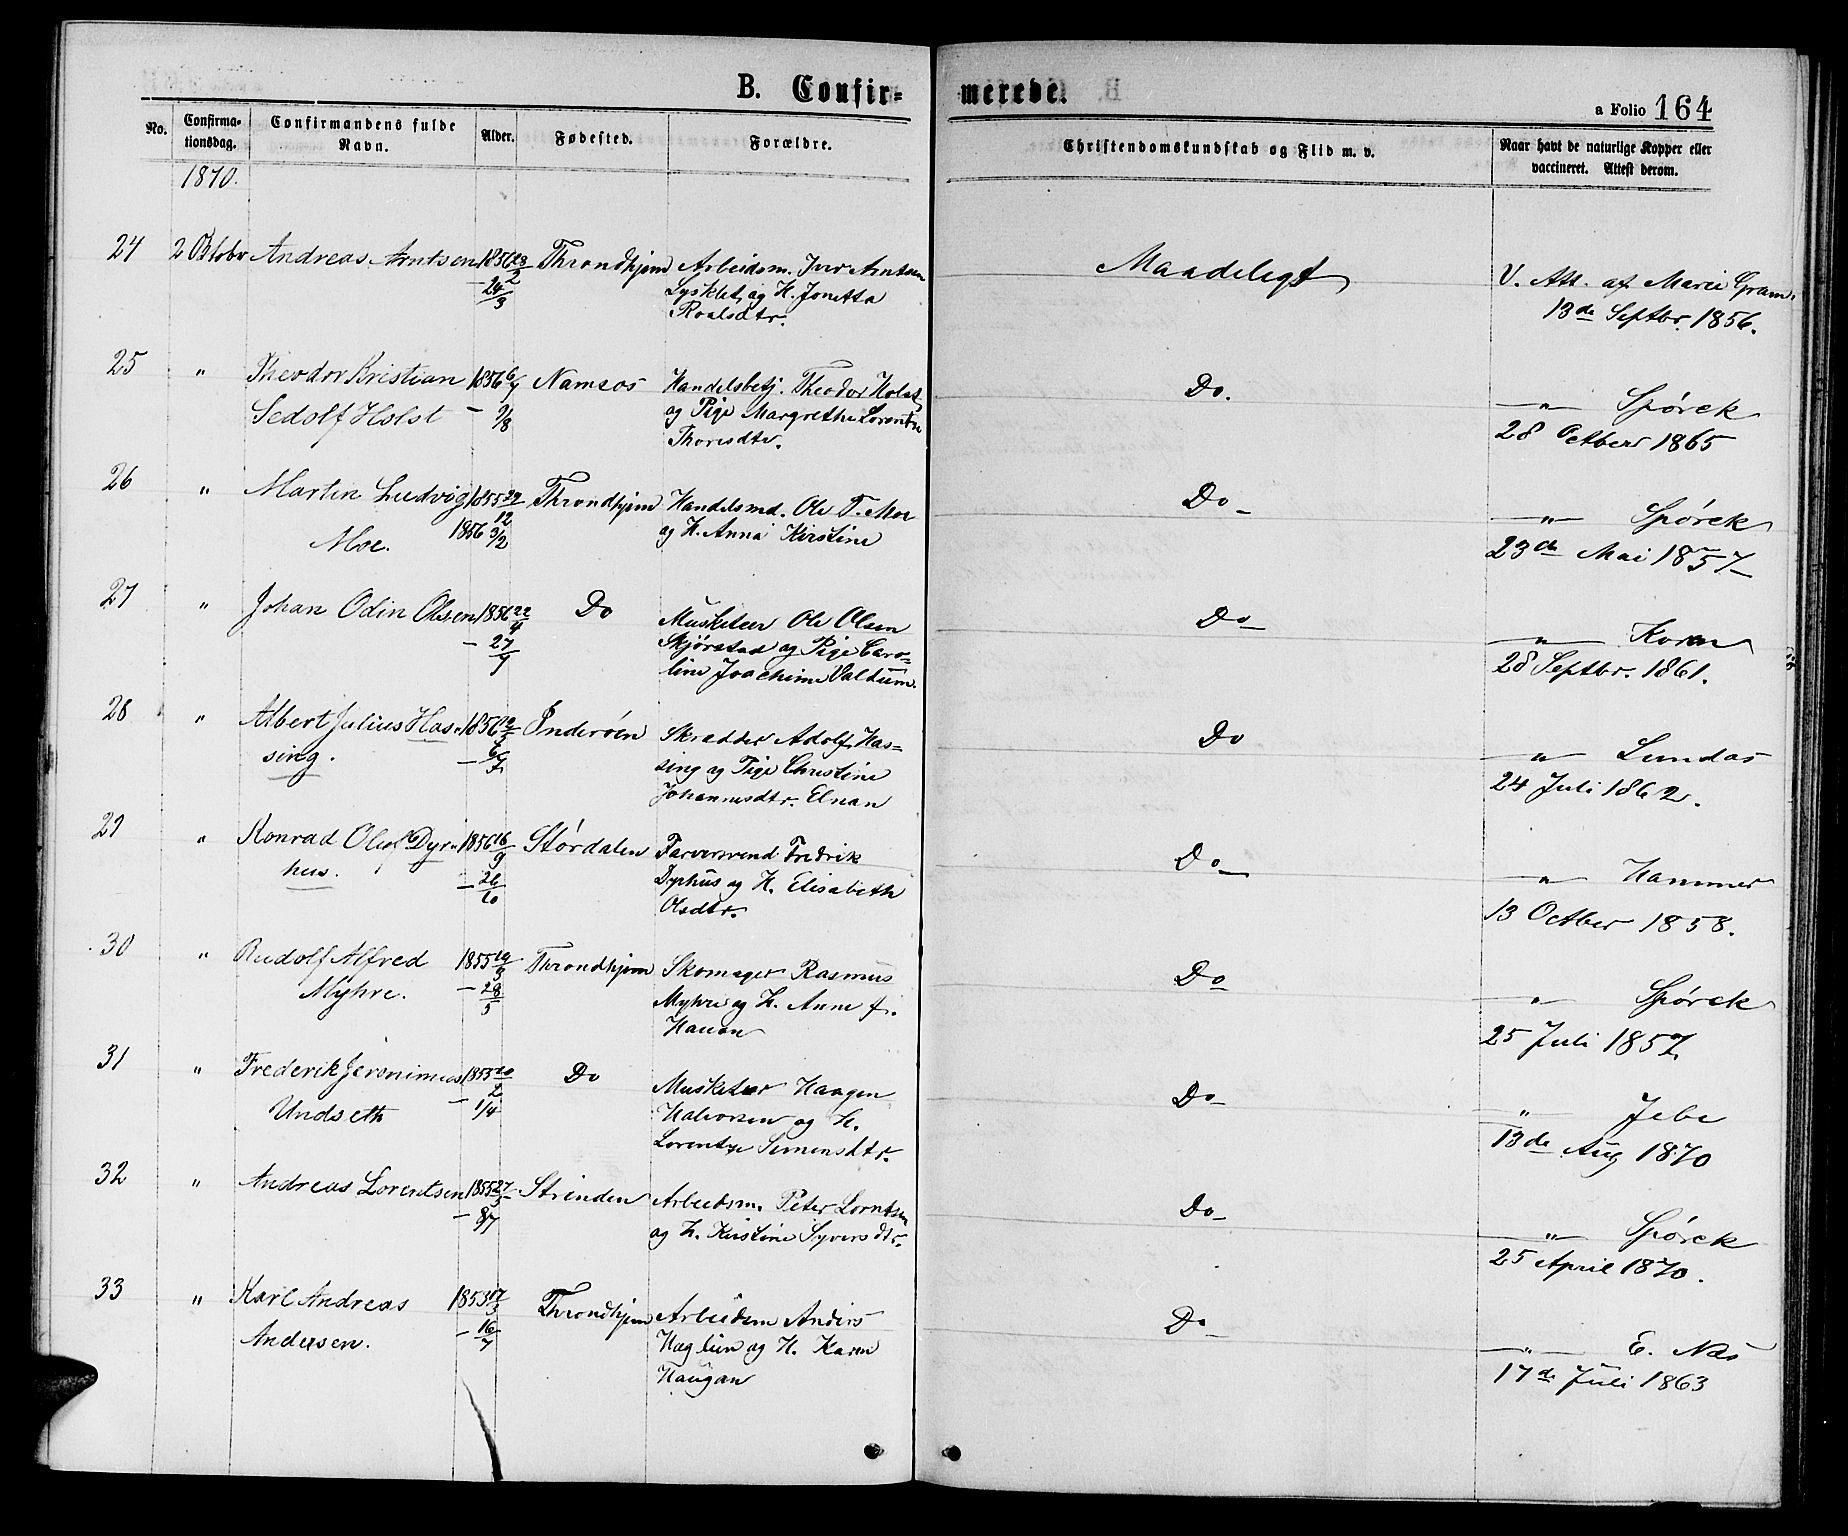 B. Confir- merede.
a Folio 164
No. Confirma-tionsdag. Confirmandens fulde Navn. Alder. Fødested. Forældre. Christendomskundskab og Flid m. v. Naar havt de naturlige Kopper eller vaccineret. Attest derom.
1870.
24 2 Octobr Andreas Arntsen 1856 Throndhjem Arbeidsm. Iver Arntsen Maadeligt V. Att. af Marie Gram
24/3 Lysklet og H. Jonetta 13de Septbr. 1856.
Roalsdtr.
25 " Theodor Kristian 1856 Namsos Handelsbetj. Theodor Holst Do. —"— Spörck
Sedolf Holst — 9/8 og Pige Margrethe Lorentze 28 Octber 1865
Thoresdtr.
26 " Martin Ludvig 1855 29/12 Throndhjem Handelsmd. Ole T. Moe Do — —"— Spörck
Moe. 1856 3/2 og H. Anna Kirstine 23de Mai 1857 —
27 " Johan Odin Olsen 1856 22/4 Do Musketeer Ole Olsen Do — —"— Koren
— 27/7 Skjørstad og Pige Caro= 28 Septbr. 1861.
line Joachime Valdum.
28 " Albert Julius Has- 1856 Inderøen Skrædder Adolf Has= Do —"— Lundas
sing. sing og Pige Christine 24 Juli 1862.
Johannesdtr. Elnan
29 " Konrad Oluf Dyr- 1856 16/9 Størdalen Farversvend Fredrik Do — —"— Hammer
hus. — 26/10 Dyrhus og H. Elisabeth 13 Octber 1858.
Olsdtr.
30 " Rudolf Alfred 1855 19/3 Throndhjem Skomager Rasmus Do —"— Spörck
Myhre. — 28/5 Myhre og H. Anne f. 25 Juli 1857
Hauan
31 " Frederik Jeronimus 1855 20/2 Do Musketeer Haagen Do — " — Jebe
Undseth — 1/4 Halvorsen og H. 13de Aug 1870
Lorentze Simensdtr.
32 " Andreas Lorentsen 1855 27/5 Strinden Arbeidsm. Peter Lorntsen Do — —"— Spörck
— 8/7 og H. Kirstine Syversdtr. 25 April 1870.
33 " Karl Andreas 1853 17/3 Throndhjem Arbeidsm Anders Do — —"— E. Næs
Andersen. — 16/7 Haglien og H. Karen 17de Juli 1863
Haugan